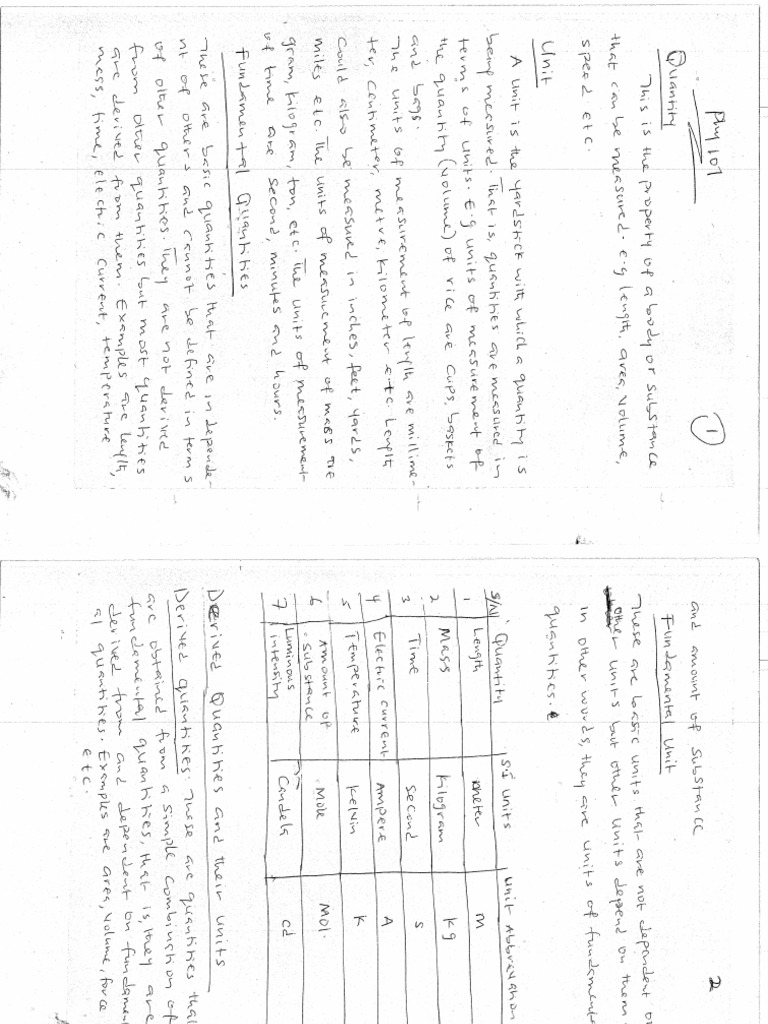 Phy 101
1
Quantity
This is the property of a body or substance
that can be measured. e.g length, area, volume,
speed etc.
Unit
A unit is the yardstick with which a quantity is
being measured. That is, quantities are measured in
terms of units. E.g units of measurement of
the quantity (volume) of rice are cups, baskets
and bags.
The units of measurement of length are millime-
ter, centimeter, metre, kilometer e.t.c. Length
could also be measured in inches, feet, yards,
miles etc. The units of measurement of mass are
gram, kilogram, ton, etc. The units of measurement
of time are second, minutes and hours.
Fundamental Quantities
These are basic quantities that are in depende-
nt of others and cannot be defined in terms
of other quantities. They are not derived
from other quantities but most quantities
are derived from them. Examples are length,
mass, time, electric current, temperature
2
and amount of substance
Fundamental Unit
These are basic units that are not dependent o
other units but other units depend on them.
in other words, they are units of fundamenta
quantities.
S/N Quantity S.I units unit Abbrevation
1 Length meter m
2 Mass kilogram kg
3 Time second s
4 Electric current Ampere A
5 Temperature Kelvin K
6 Amount of substance Mole Mol.
7 Luminous intensity Candela cd
Derived Quantities and their units
Derived quantities. These are quantities that
are obtained from a simple combination of
fundamental quantities, that is, they are
derived from and dependent on fundament
al quantities. Examples are area, volume, force
etc.